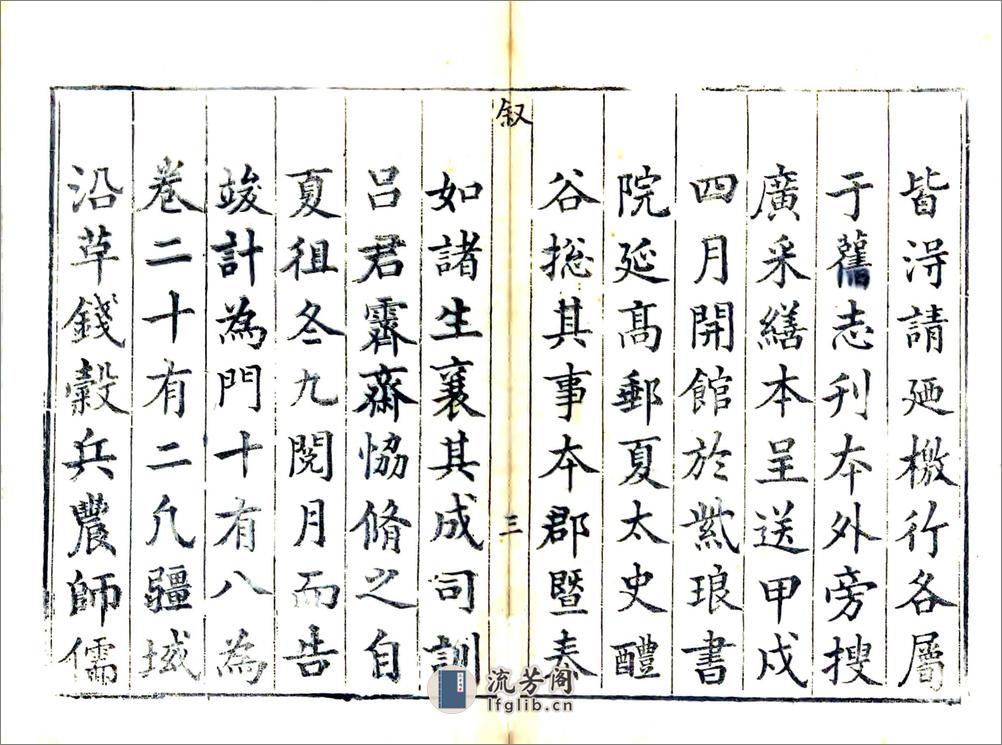 皆淂請廼檄行各屬
于舊志刋本外旁搜
廣采繕本呈送甲戍
四月開館於紫琅書
院延髙郵夏太史醴
谷揔其事本郡暨泰
叙
三
如諸生襄其成司訓
吕君霽齋恊脩之自
夏徂冬九閱月而告
竣計為門十有八為
卷二十有二凢疆域
沿革錢糓兵農師儒
流芳阁
lfglib.cn